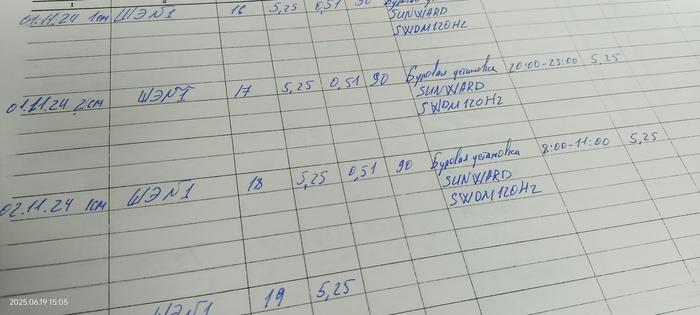 1 2
01.11.24 1см ШЭ№1 16 5,25 0,51 90
SUNWARD
SWDM120HZ
01.11.24 2см ШЭ№1 17 5,25 0,51 90 Буровая установка 20:00-23:00 5,25
SUNWARD
SWDM120HZ
02.11.24 1см ШЭ№1 18 5,25 0,51 90 Буровая установка 8:00-11:00 5,25
SUNWARD
SWDM120HZ
ШЭ№1 19 5,25
2025.06.19 15:05